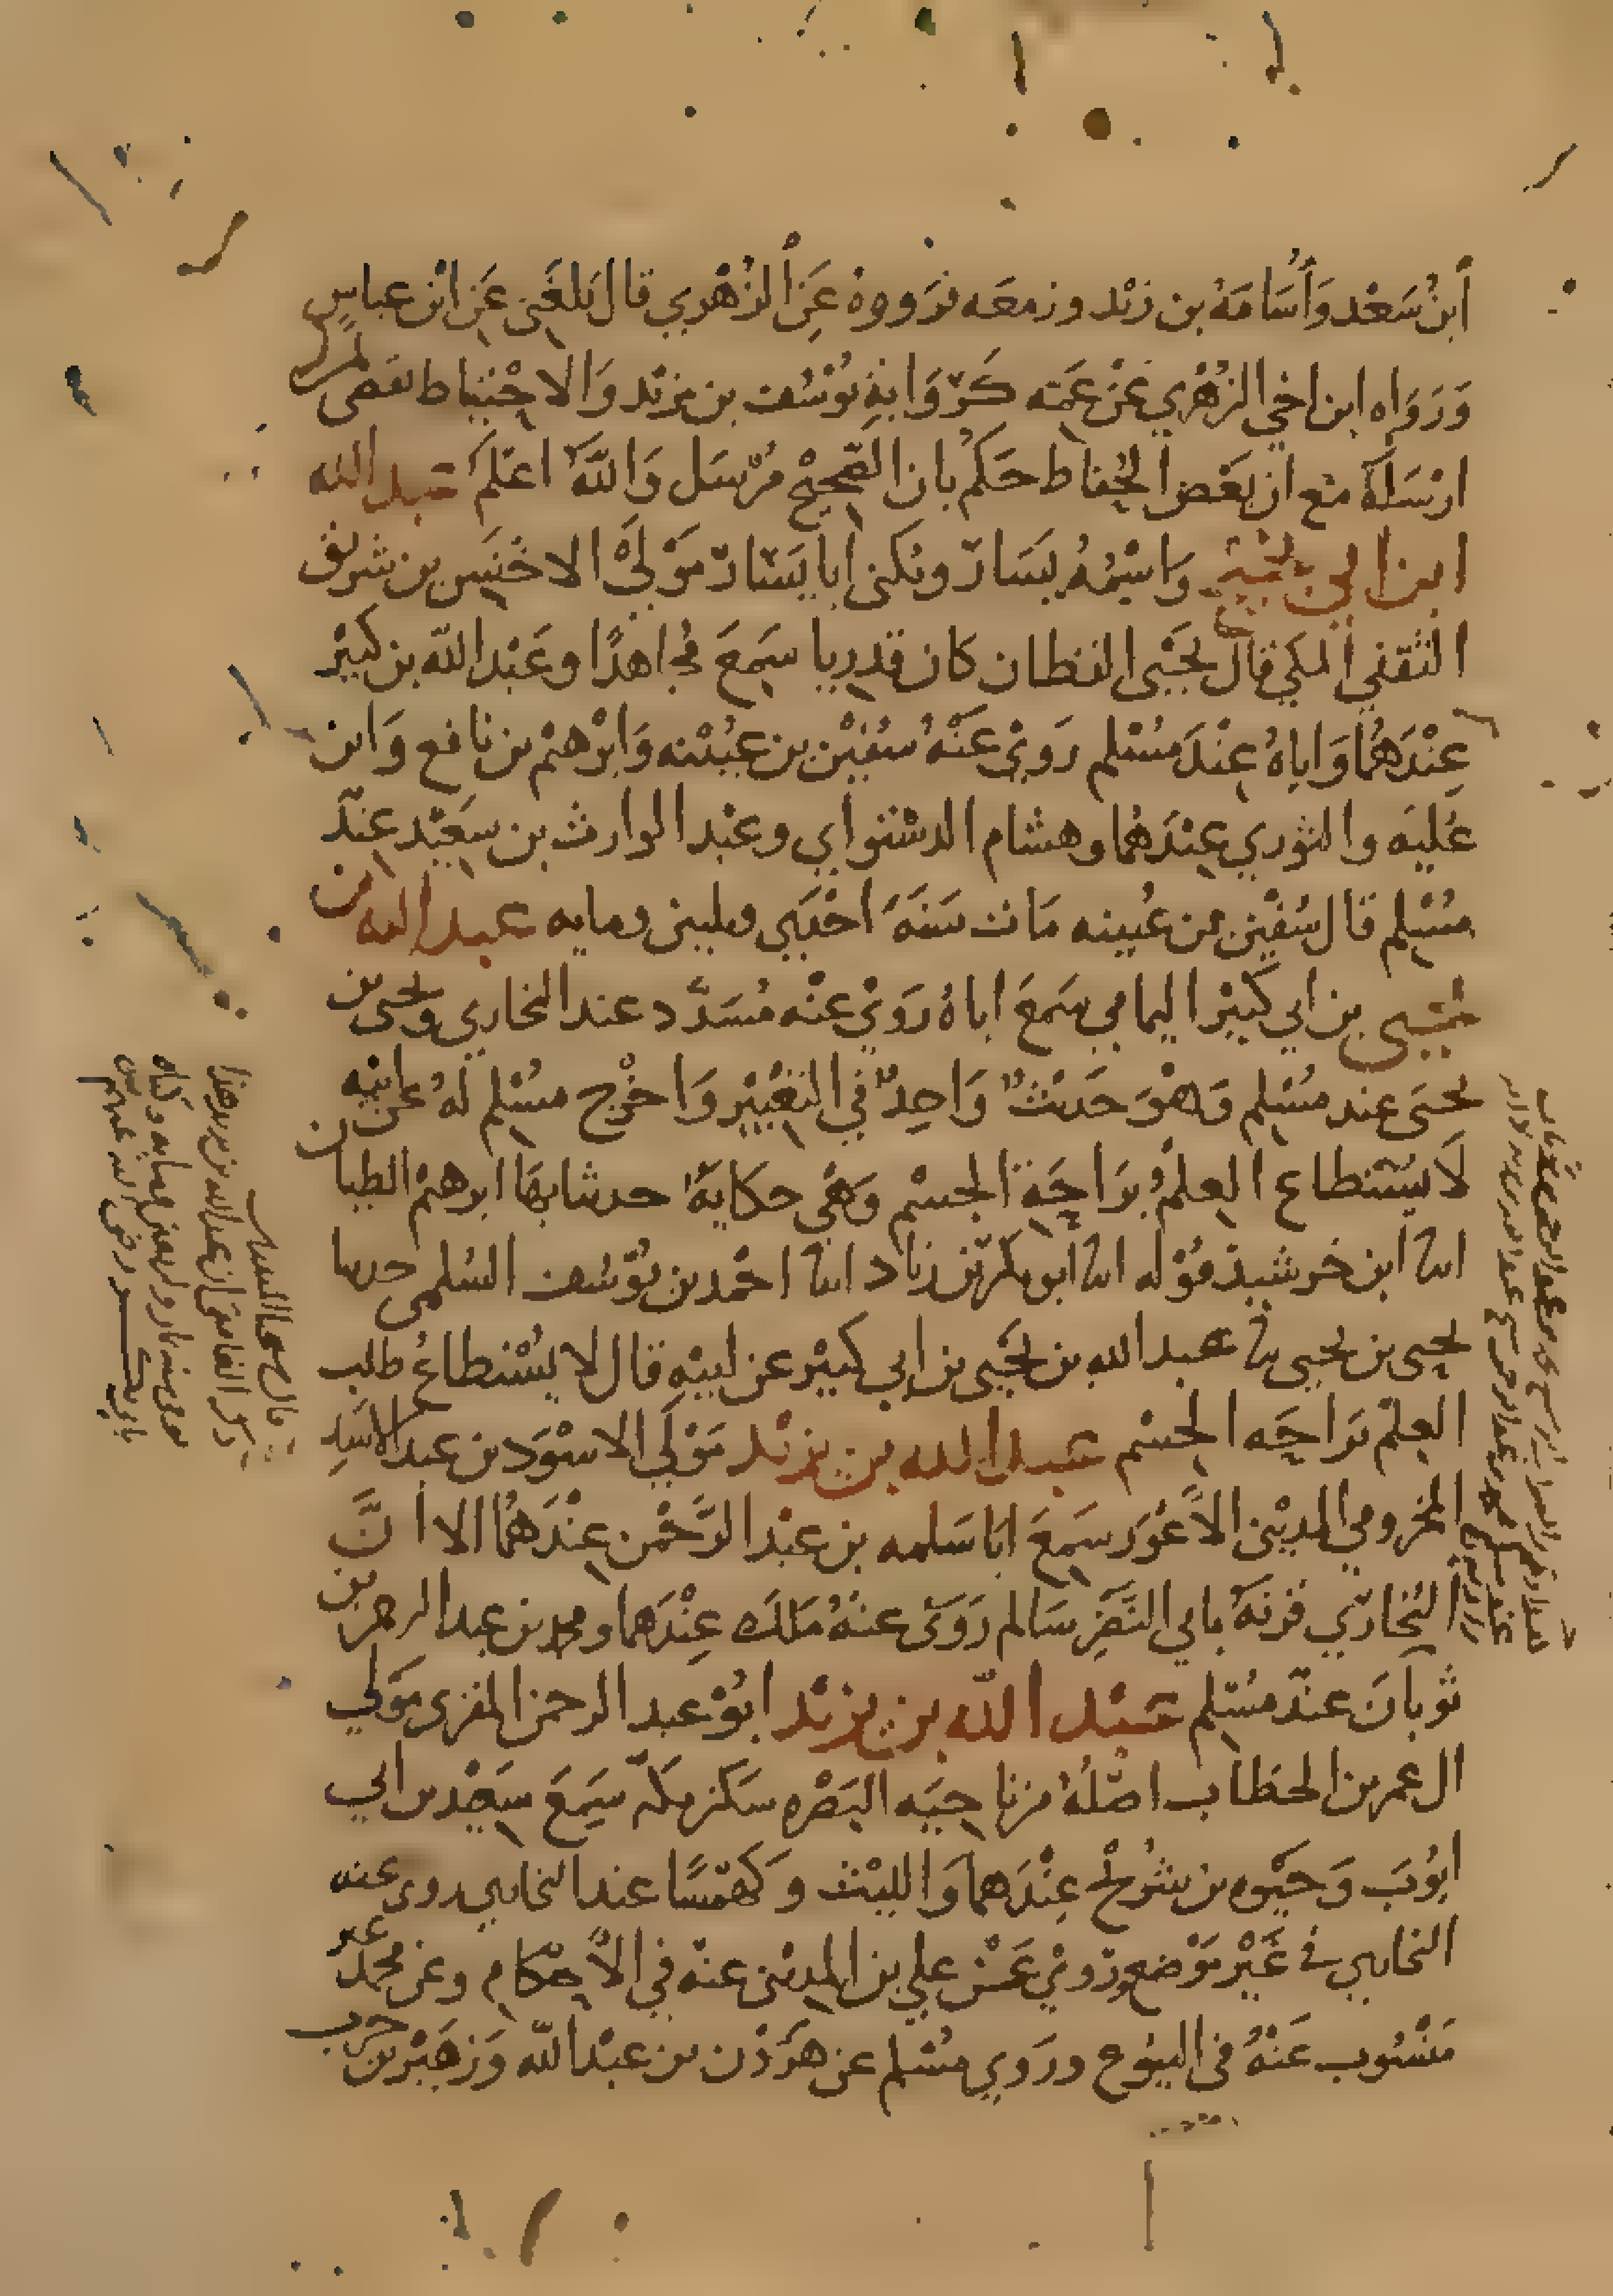 أبنُ سَعْد وَأسَامَةُ بن زيْد وزمعَه يَرَووهُ عَنِ الزُهْرِي قال بَلغَني عَنِ ابْن عباسٍ
وَرَوَاه ابن اخي الزهْرِي عَنْ عَمّه كَرِوَايةِ يُوْسُف بن يزيْد وَالاحْتياط لمن نقص
ارْسَلهُ مَع ان بَعْض الحُفاظ حَكم بان الصّحِيْح مُرْسَل وَاللهُ اعْلم عبد الله
ابن ابي نجيح وَاسْمُهُ يَسَار ويكنى ابا يَسَار مَوْلَى الاخْنَس بن شريق
الثقفي المكي قال يَحْيَى القطان كان قدريا سَمِعَ مُجاهدًا وعَبْد الله بن كثيْر
عِنْدَهُمَا وَاباهُ عِنْدَ مسْلم رَوَى عَنْهُ سُفيْن بن عيُيْنه وَابْرهيْم بن نافع وَابن
عُليّه والثوري عِنْدَهُمَا وهشام الدستوايي وعبْد الوارث بن سَعِيْد عند
مُسْلم قال سُفيْن بن عُيينه مَات سَنَةَ احْدَى وثلثين ومايه عبد الله بن
يحيى بن ابي كثيْر اليمامي سَمعَ اباهُ رَوَى عنْه مُسَدَّد عند البخاري ويحيى بن
يحيَى عند مُسْلم وَهْوَ حَديْثٌ وَاحِدٌ في التعْبيْر وَاخرْج مسْلم لهُ عن ابيْه
لَا يُسْتطاع العِلمُ برَاحَةِ الجسْم وَهْي حكايَة حدثنا بهَا ابرهيْم الطيان
انا ابن خرشيد قوْله انا ابو بكر بن زياد انا احْمد بن يوْسُف السُلمي حدثنا
يحيى بن يحيى نا عبد الله بن يحْيَى بن ابي كثيْر عن ابيْهِ قال لا يُسْتطاعُ طلب
العِلمْ برَاحَه الجسْم عبد الله بن يزيْد مَوْلَى الاسْوَد بن عبد الاسَدِ
المخزومي المدِيْني الاعْوَر سَمِعَ ابَا سَلمه بن عبْد الرَّحْمن عِنْدَهُمَا الا انَّ
البُخارِي قرنَهُ بابي النَّضرِ سَالم رَوَى عنهُ مَالك عِنْدَهما ومحمد بن عبد الرحمن بن
ثوبانَ عند مسْلم عَبْد الله بن يزيْد ابوْ عبد الرحمن المقري مَوْلَي
ال عمر بن الخطاب اصْلهُ من ناحيَه البَصْره سَكن مكه سَمِعَ سَعِيْد بن ابي
ايُوبَ وَحَيْوه بن شُرَيْح عِنْدَهما وَالليْث وكهْمسًا عند البخاري روى عنه
البخاري في غَيْر مَوْضع وَرَوَى عَنْ علي بن المديْني عنه في الاحْكام وعن محمد غير
مَنْسُوب عَنْهُ في البيُوع ورَوَى مسْلم عن هَرُوْن بن عبْد الله وَزهَيْر بن حرب